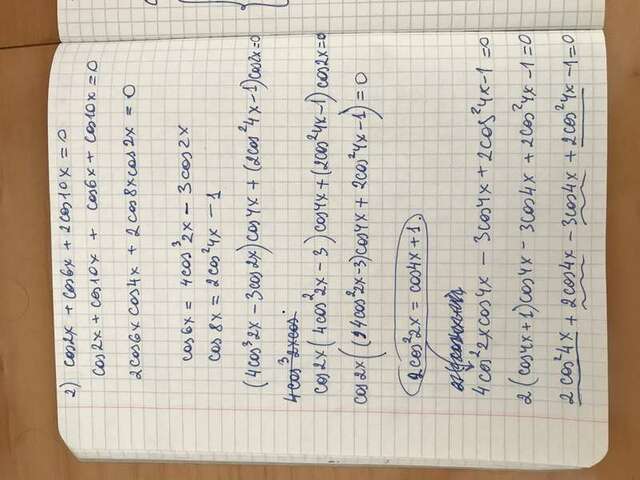 2) cos2x + cos6x + 2cos10x = 0
cos2x + cos10x + cos6x + cos10x = 0
2cos6x cos4x + 2cos8x cos2x = 0
cos6x = 4cos³2x - 3cos2x
cos8x = 2cos²4x - 1
(4cos³2x - 3cos2x)cos4x + (2cos²4x - 1)cos2x = 0
4cos³2xcos
cos2x(4cos²2x - 3)cos4x + (2cos²4x - 1)cos2x = 0
cos2x((4cos²2x - 3)cos4x + 2cos²4x - 1) = 0
2cos²2x = cos4x + 1.
4cos²2xcos4x - 3cos4x + 2cos²4x - 1 = 0
2(cos4x + 1)cos4x - 3cos4x + 2cos²4x - 1 = 0
2cos²4x + 2cos4x - 3cos4x + 2cos²4x - 1 = 0